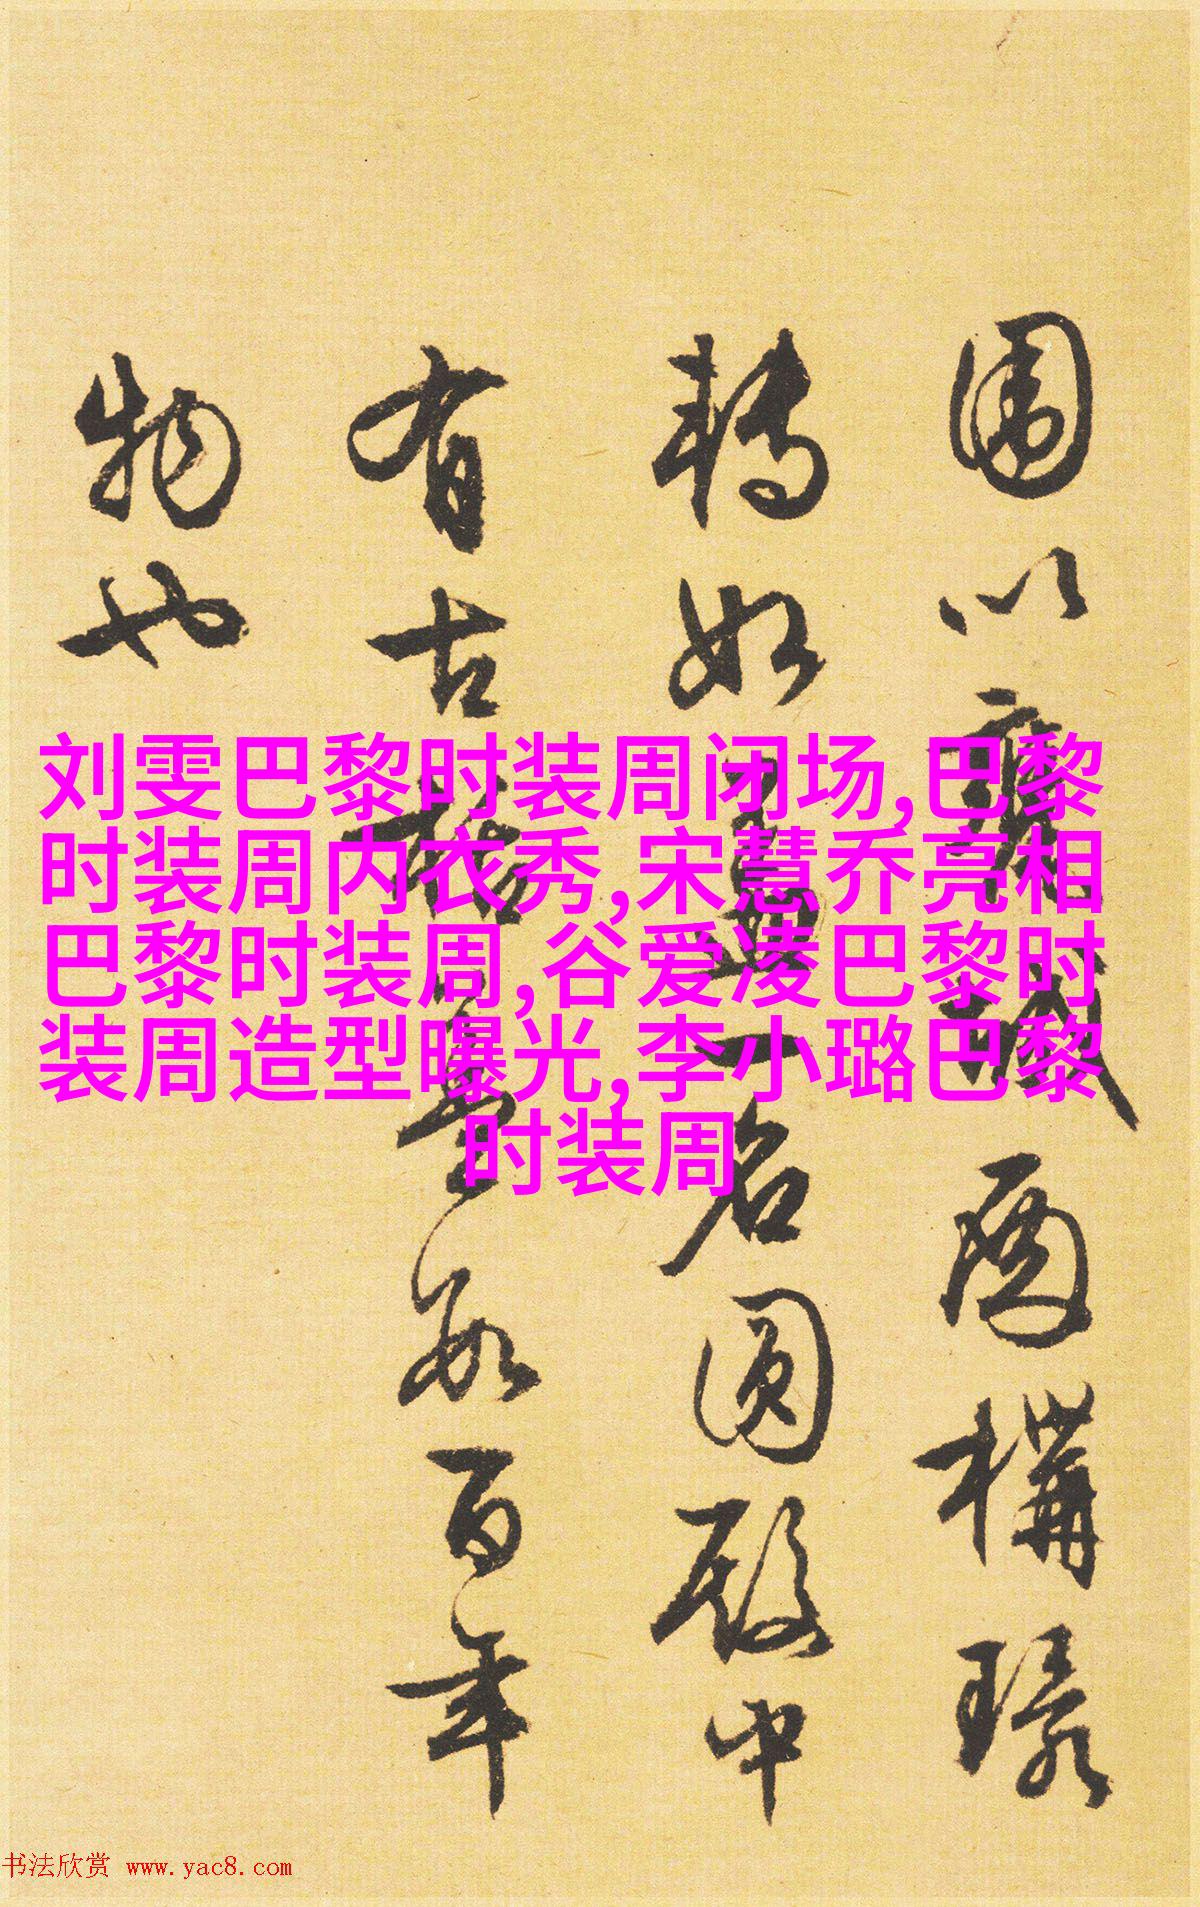 圍以城構環
轉如蓋一名圓殿中
有古栝數百年
物也
刘雯巴黎时装周闭场,巴黎
时装周内衣秀,宋慧乔亮相
巴黎时装周,谷爱凌巴黎时
装周造型曝光,李小璐巴黎
时装周
书法欣赏 www.yac8.com